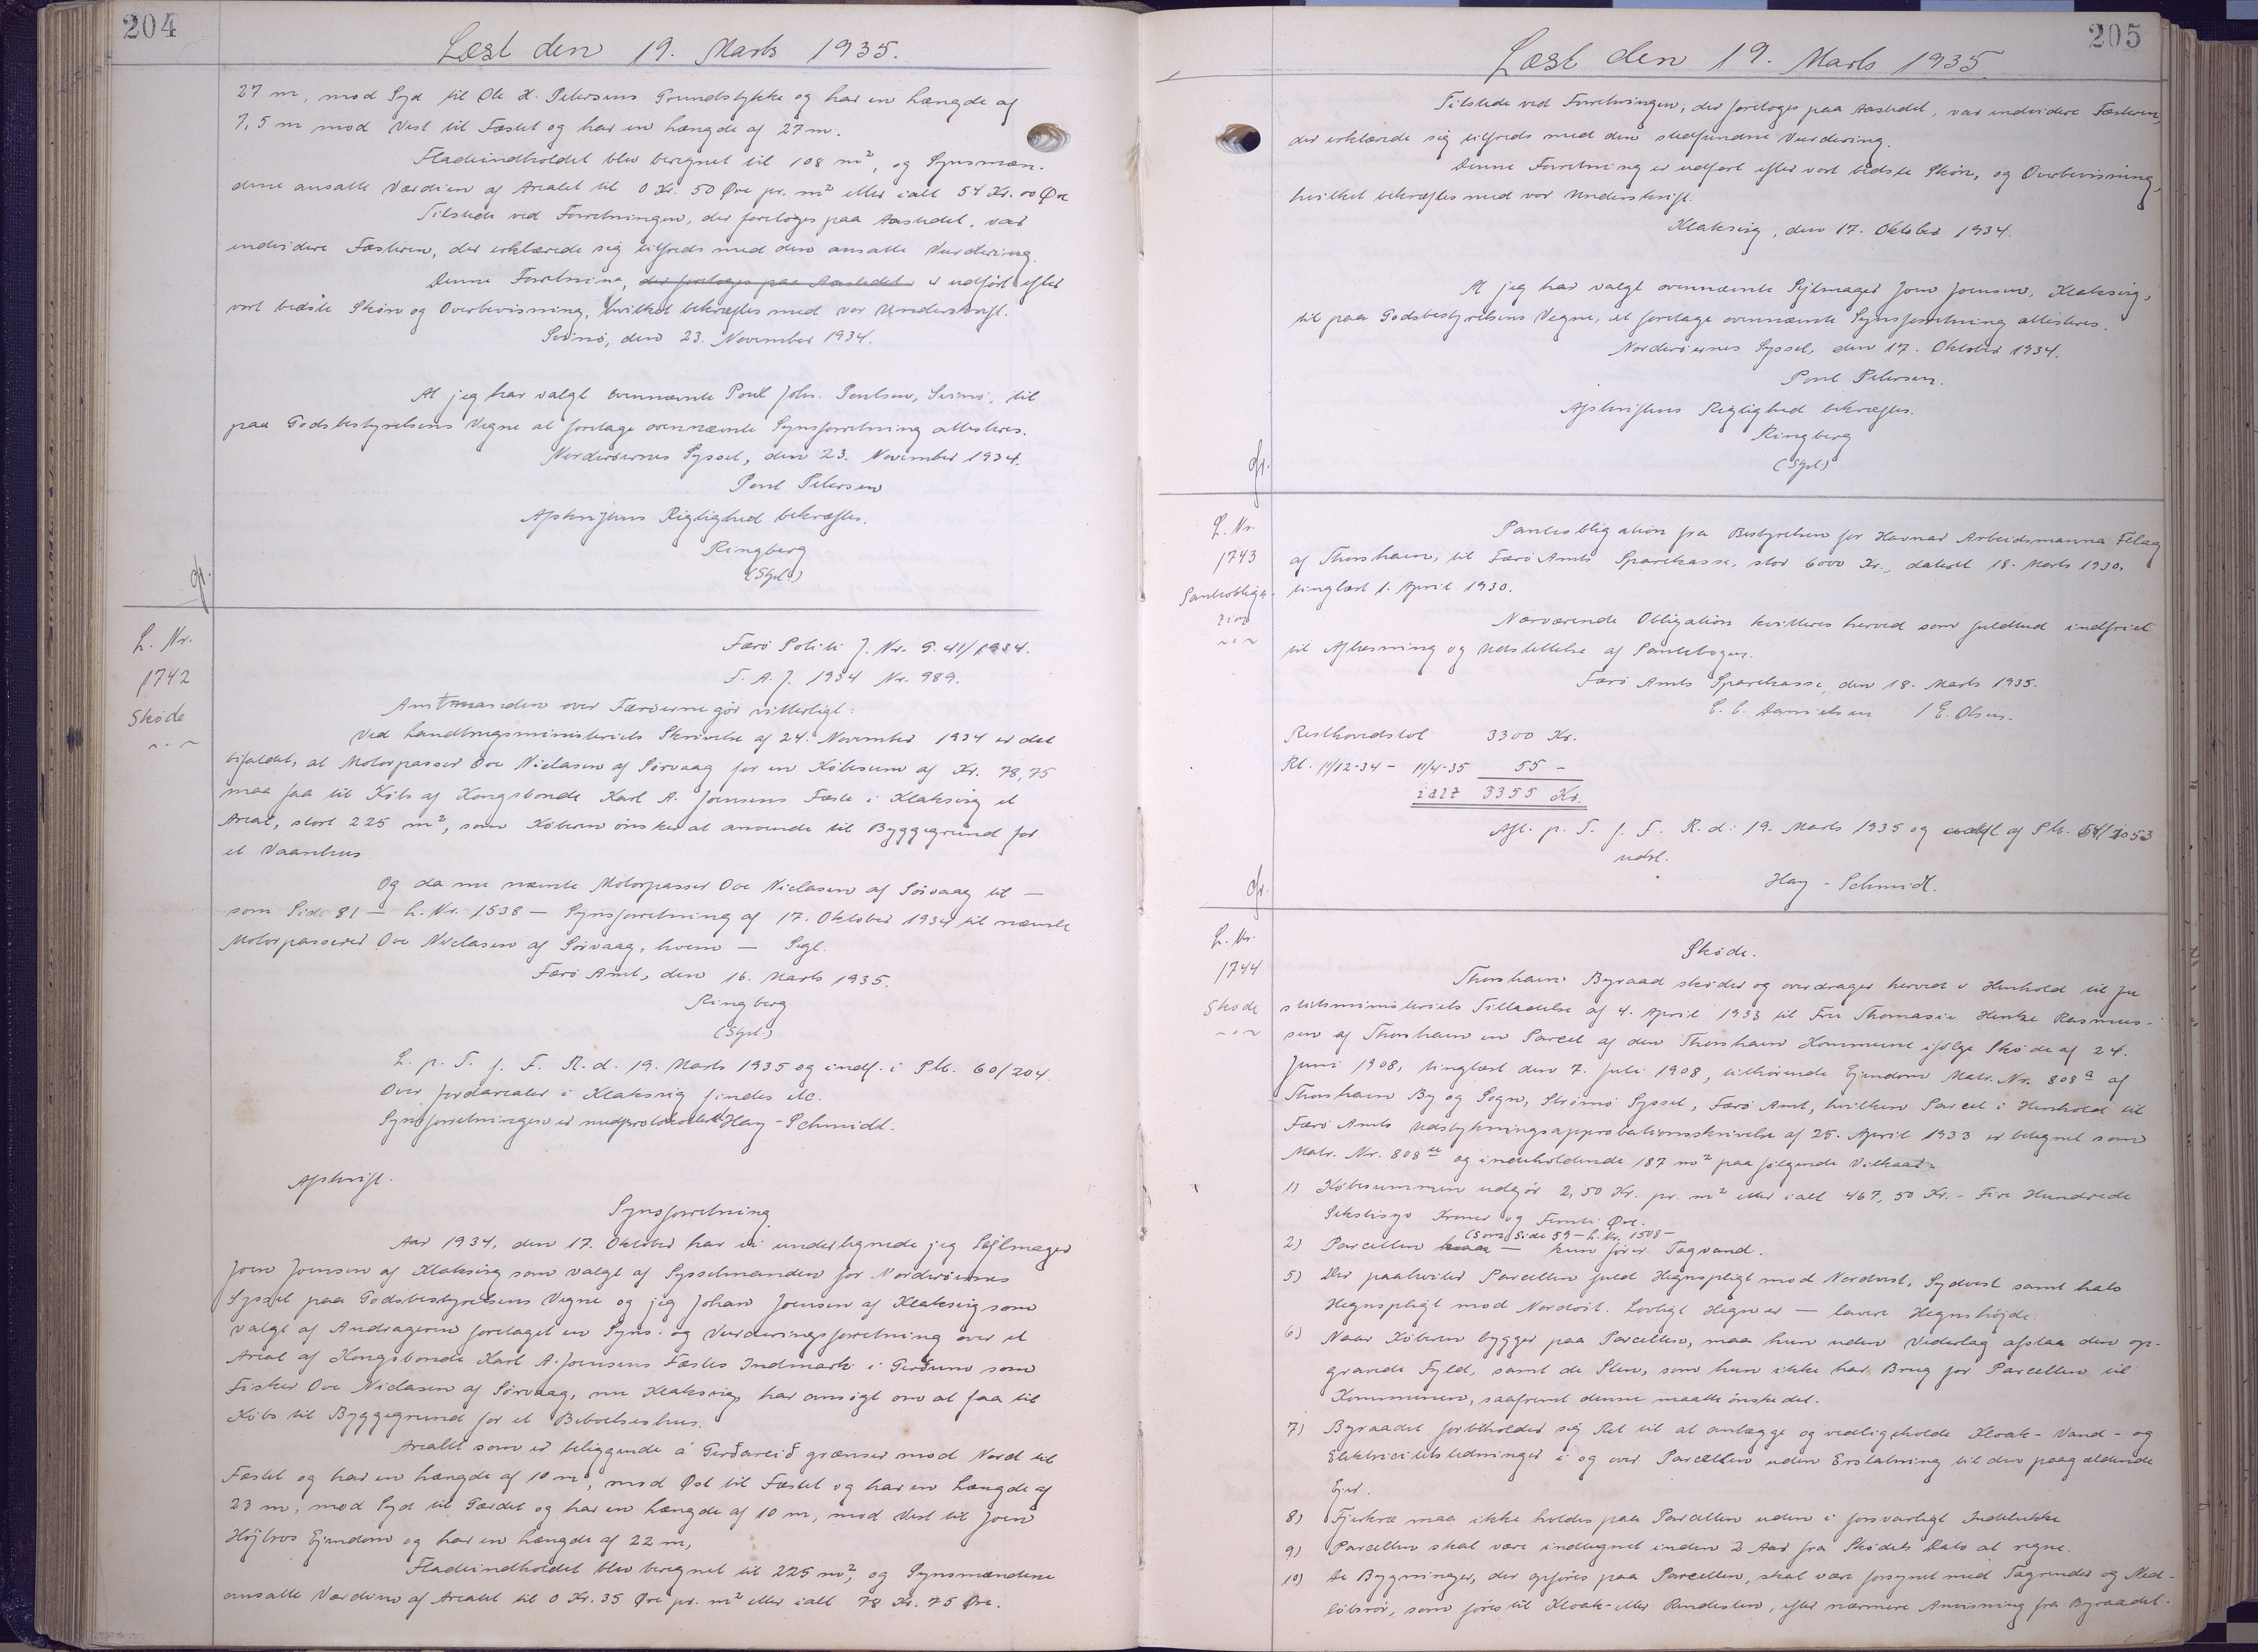 204
Læst den 19. Marts 1935.
27 m, mod Syd til Ole H. Petersens Grundstykke og har en Længde af
7,5 m mod Vest til Fæstet og har en Længde af 27 m.
Fladeindholdet blev beregnet til 108 m², og Synsmæn-
dene ansatte Værdien af Arealet til 0 Kr. 50 Øre pr. m² eller ialt 54 Kr. 00 Øre
Tilstede ved Forretningen, der foretoges paa Aastedet, var
endvidere Fæsteren, der erklærede sig tilfreds med den ansatte Vurdering.
Denne Forretning, der foretoges paa Aastedet er udført efter
vort bedste Skøn og Overbevisning, hvilket bekræftes med vor Underskrift.
Svinø, den 23. November 1934.
At jeg har valgt ovennævnte Poul Johs. Poulsen, Svinø, til
paa Godsbestyrelsens Vegne at foretage ovennævnte Synsforretning attesteres.
Norderøernes Syssel, den 23. November 1934.
Poul Petersen
Afskriftens Rigtighed bekræftes.
Ringberg
(Sgl.)
L. Nr.
1742
Skøde
Færø Politi J. Nr. 9. 41/1934.
F. A. J. 1934 Nr. 989.
Amtmanden over Færøerne gør vitterligt:
Ved Landbrugsministeriets Skrivelse af 24. November 1934 er det
bifaldet, at Motorpasser Ove Niclasen af Sørvaag for en Købesum af Kr. 78,75
maa faa til Køb af Kongsbonde Karl A. Joensens Fæste i Klaksvig et
Areal, stort 225 m², som Køberen ønsker at anvende til Byggegrund for
et Vaanhus
Og da nu nævnte Motorpasser Ove Niclasen af Sørvaag til —
som Side 81 — L. Nr. 1538 — Synsforretning af 17. Oktober 1934 til nævnte
Motorpasser Ove Niclasen af Sørvaag, hvem — Sgl.
Færø Amt, den 16. Marts 1935.
Ringberg
(Sgl.)
L. p. T. f. F. R. d. 19. Marts 1935 og indf. i Pb. 60/204
Over Jordarealer i Klaksvig findes etc.
Synsforretningen er medprotokolleret Hay-Schmidt.
Afskrift.
Synsforretning
Aar 1934, den 17. Oktober har vi undertegnede jeg Sejlmager
Joen Joensen af Klaksvig som valgt af Sysselmanden for Norderøernes
Syssel paa Godsbestyrelsens Vegne og jeg Johan Joensen af Klaksvig som
valgt af Andrageren foretaget en Syns- og Vurderingsforretning over et
Areal af Kongsbonde Karl A. Joensens Fæstes Indmark i Gerðum som
Fisker Ove Niclasen af Sørvaag, nu Klaksvig har ansøgt om at faa til
Købs til Byggegrund for et Beboelseshus.
Arealet som er beliggende á Gerðareið grænser mod Nord til
Fæstet og har en Længde af 10 m, mod Øst til Fæstet og har en Længde af
23 m, mod Syd til Gærdet og har en Længde af 10 m, mod Vest til Joen
Højbros Ejendom og har en Længde af 22 m,
Fladeindholdet blev beregnet til 225 m², og Synsmændene
ansatte Værdien af Arealet til 0 Kr. 35 Øre pr. m² eller ialt 78 Kr. 75 Øre.
205
Læst den 19. Marts 1935.
Tilstede ved Forretningen, der foretoges paa Aastedet, var endvidere Fæsteren,
der erklærede sig tilfreds med den stedfundne Vurdering.
Denne Forretning er udført efter vort bedste Skøn, og Overbevisning,
hvilket bekræftes med vor Underskrift.
Klaksvig, den 17. Oktober 1934.
At jeg har valgt ovennævnte Sejlmager Joen Joensen, Klaksvig,
til paa Godsbestyrelsens Vegne, at foretage ovennævnte Synsforretning attesteres.
Norderøernes Syssel, den 17. Oktober 1934.
Poul Petersen.
Afskriftens Rigtighed bekræftes.
Ringberg
(Sgl.)
L. Nr.
1743
Panteobliga-
tion
Panteobligation fra Bestyrelsen for Havnar Arbeidsmanna Felag
af Thorshavn, til Færø Amts Sparekasse, stor 6000 Kr., dateret 18. Marts 1930,
tinglæst 1. April 1930.
Nærværende Obligation kvitteres herved som fuldtud indfriet
til Aflæsning og Udslettelse af Pantebogen.
Færø Amts Sparekasse, den 18. Marts 1935.
C. C. Danielsen / E. Olsen.
Resthovedstol 3300 Kr.
Rt. 11/12-34 – 11/4-35 55 –
ialt 3355 Kr.
Afl. p. T. f. F. R. d: 19. Marts 1935 og af Pb. 54/1053
udsl.
Hay-Schmidt.
L. Nr.
1744
Skøde
Skøde.
Thorshavn Byraad skøder og overdrager herved i Henhold til Ju
stitsministeriets Tilladelse af 4. April 1933 til Fru Thomasia Henke Rasmus-
sen af Thorshavn en Parcel af den Thorshavn Kommune ifølge Skøde af 24.
Juni 1908, tinglæst den 7. Juli 1908, tilhørende Ejendom Matr. Nr. 808ª af
Thorshavn By og Sogn, Strømø Syssel, Færø Amt, hvilken Parcel i Henhold til
Færø Amts Udstykningsapprobationsskrivelse af 25. April 1933 er betegnet som
Matr. Nr. 808 og indeholdende 187 m² paa følgende Vilkaar:
1) Købesummen udgør 2,50 Kr. pr. m² eller ialt 467,50 Kr. - Fire Hundrede
Sekstisyv Kroner og Femti Øre.
(som Side 59 – L. Nr. 1508 –
2) Parcellen — kun fører Tagvand.
5) Der paahviler Parcellen fuld Hegnspligt mod Nordvest, Sydvest samt halv
Hegnspligt mod Nordøst. Lovligt Hegn er — lavere Hegnshøjde.
6) Naar Køberen bygger paa Parcellen, maa hun uden Vederlag afstaa den op-
gravede Fyld, samt de Sten, som hun ikke har Brug for Parcellen til
Kommunen, saafremt denne maatte ønske det.
7) Byraadet forbeholder sig Ret til at anlægge og vedligeholde Kloak- Vand- og
Elektricitetsledninger i og over Parcellen uden Erstatning til den paagældende
Ejer.
8) Fjerkræ maa ikke holdes paa Parcellen uden i forsvarligt Indelukke
9) Parcellen skal være indhegnet inden 2 Aar fra Skødets Dato at regne.
10) De Bygninger, der opføres paa Parcellen, skal være forsynet med Tagrender og Ned-
løbsrør, som føres til Kloak- eller Rendesten, efter nærmere Anvisning fra Byraadet.